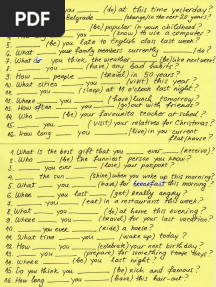 PDF
(do) at this time yesterday?
Belgrade (change) in the last 20 years?
(be) popular in your childhood?
you (know) to use a computer?
5. (be) you late to English class last week?
6. What your family members currently (do)?
7. What do you think, the weather (be) like next weekend?
8. you (have) any bad habits?
9. How people (travel) in 50 years?
10. What cities you (visit) this year?
11. you (sleep) at M o'clock last night?
12. Where you (have) lunch tomorrow?
13. How often you (go) out with friends?
14. Who (be) your favourite teacher at school?
15. you (visit) your relatives for Christmas?
16. How long you (live) in you current
flat/house?
1. What is the best gift that you ever (receive)?
2. Who (be) the funniest person you know?
3. you ever (lose) your passport?
4. the sun (shine) when you woke up this morning?
5. What you (have) for breakfast this morning?
6. When you last (get) really angry?
7. you (eat) in a restaurant this week?
8. What you (do) at home this evening?
9. Where you (travel) for your last vacation?
10. you ever (ride) a horse?
11. What time you (wake up) today?
12. How you (celebrate) your next birthday?
13. you (prepare) for something these days?
14. Where (be) you last night?
15. Do you think you (be) rich and famous?
16. How long you (have) this hair-cut?